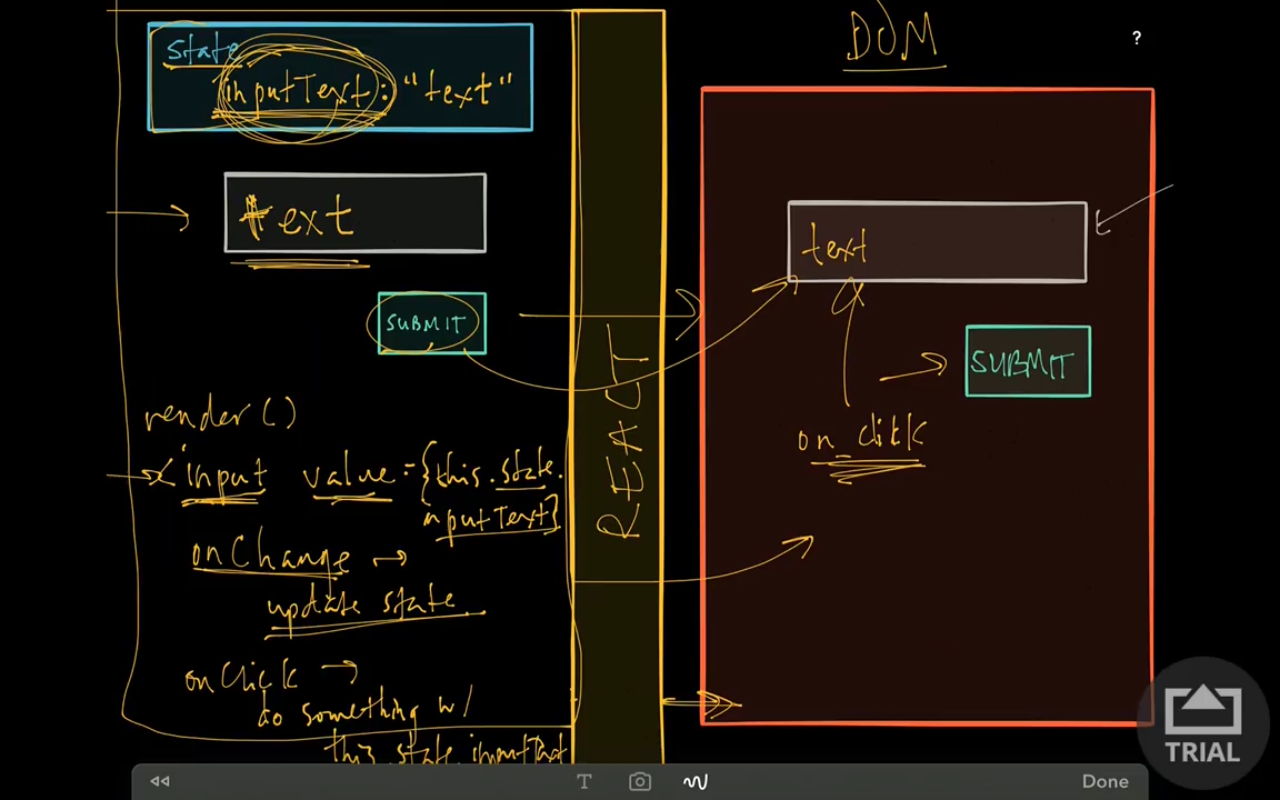 state
inputText: "text"
text
SUBMIT
render()
<input value={this.state.
inputText}
onChange →
update state
onClick →
do something w/
this state inputText
REACT
DOM
?
text
SUBMIT
on_click
T
Done
TRIAL